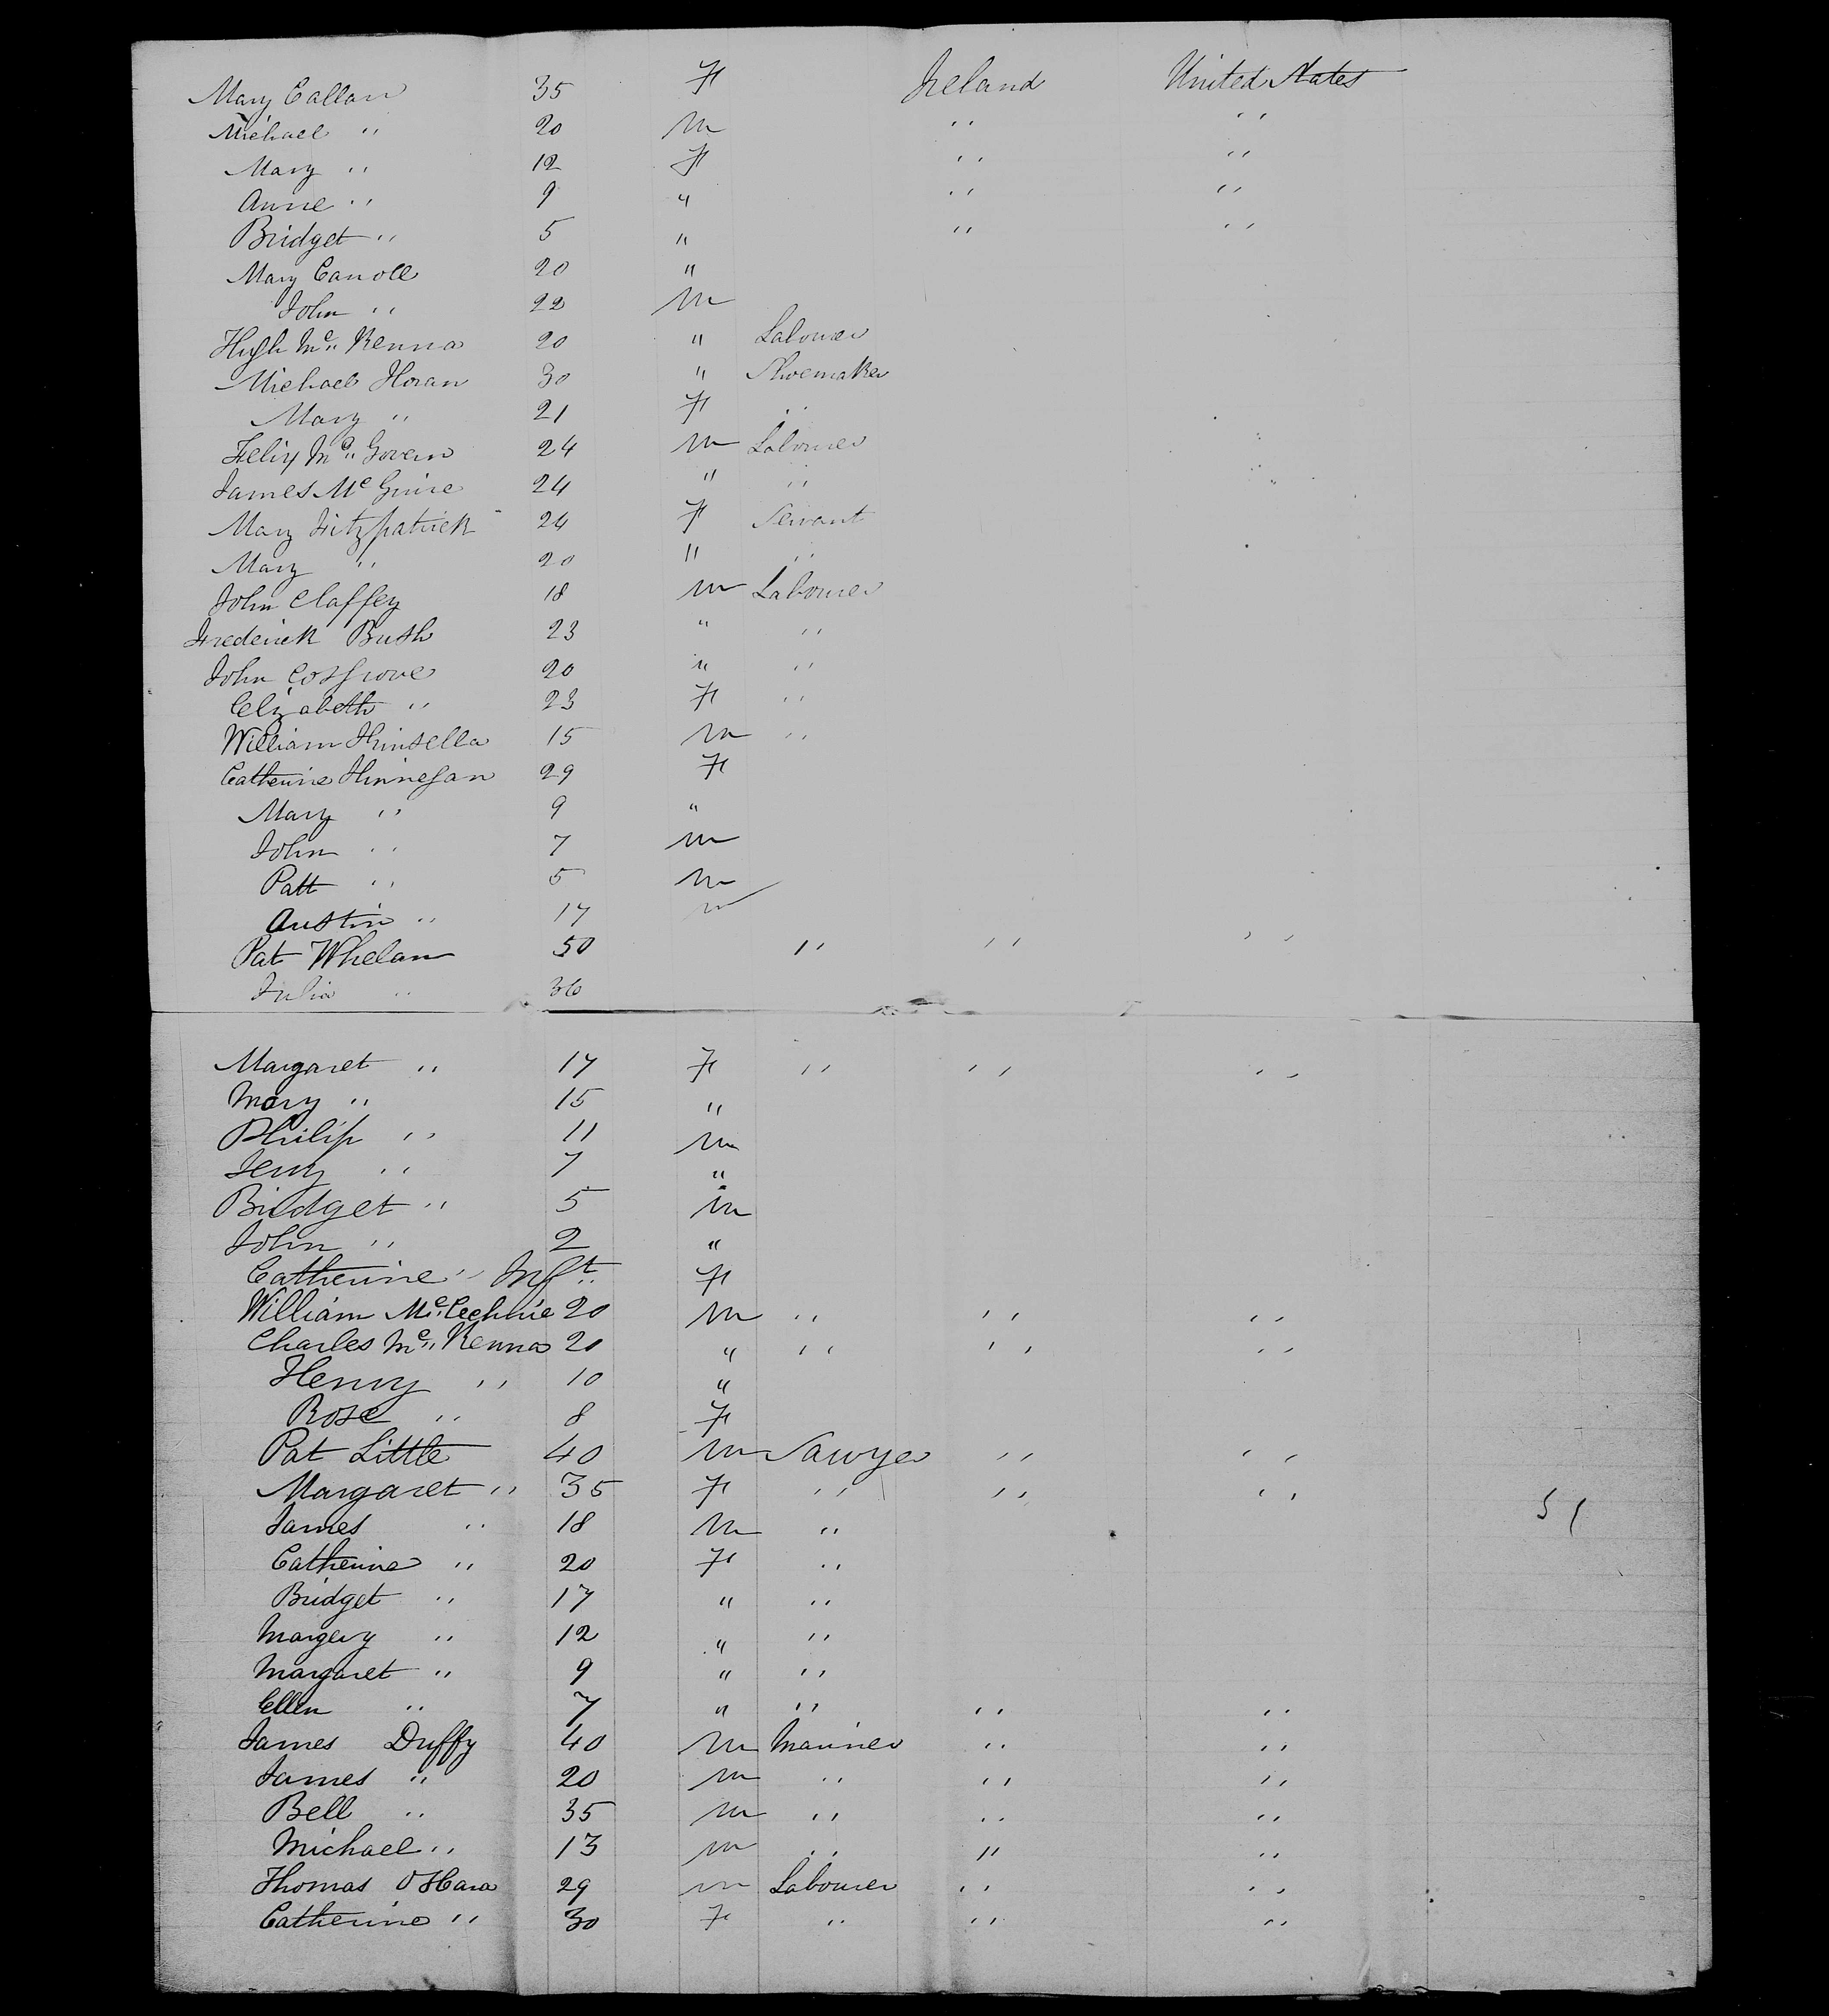 Mary Callan 35 F Ireland United States
Michael " 20 M " "
Mary " 12 F " "
Anne " 9 " " "
Bridget " 5 " " "
Mary Carroll 20 "
John " 22 M
Hugh Mc Kenna 20 " Labourer
Michael Horan 30 " Shoemaker
Mary " 21 F "
Felix Mc Govern 24 M Labourer
James Mc Guire 24 " "
Mary Fitzpatrick 24 F Servant
Mary " 20 " "
John Claffey 18 M Labourer
Frederick Bush 23 " "
John Cosgrove 20 " "
Elizabeth " 23 F "
William Kinsella 15 M "
Catherine Finnegan 29 F
Mary " 9 "
John " 7 M
Patt " 5 M
Austin " 17 M
Pat Whelan 50 " " "
Julia " 36
Margaret " 17 F " " "
Mary " 15 "
Philip " 11 M
Jerry " 7 "
Bridget " 5 M
John " 2 "
Catherine " Inft F
William Mc 20 M " " "
Charles Mc Kenna 20 " " " "
Henry " 10 "
Rose " 8 F
Pat Little 40 M Sawyer " "
Margaret " 35 F " " "
James " 18 M " 51
Catherine " 20 F "
Bridget " 17 " "
Margery " 12 " "
Margaret " 9 " "
Ellen " 7 " " " "
James Duffy 40 M Mariner " "
James " 20 M " " "
Bell " 35 M " " "
Michael " 13 M " " "
Thomas O Hara 29 M Labourer " "
Catherine " 30 F " " "